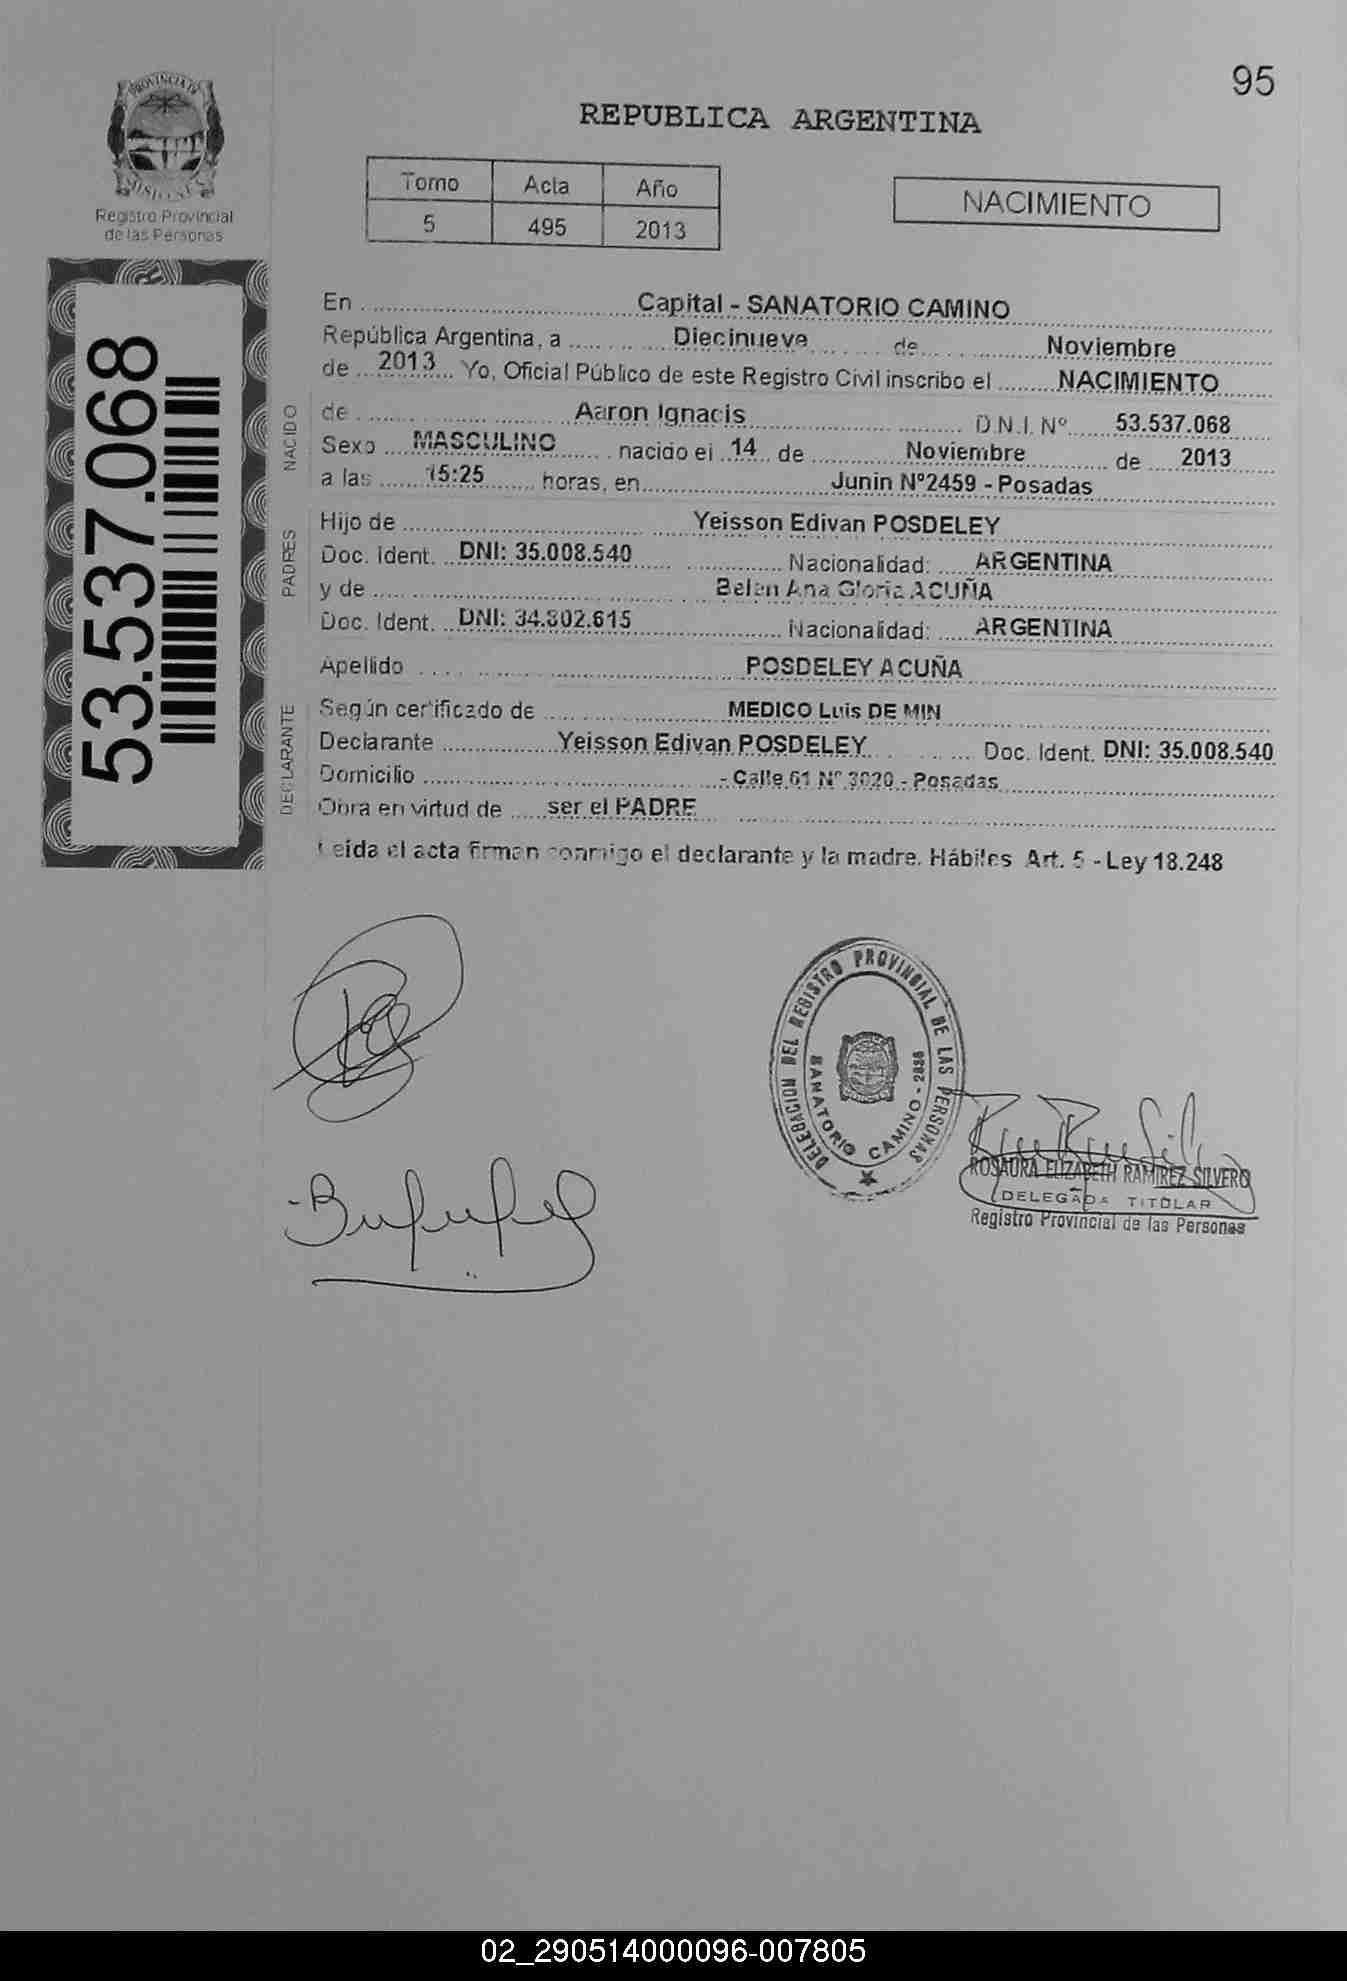 95
PROVINCIA DE
MISIONES
Registro Provincial
de las Personas
REPUBLICA ARGENTINA
Tomo Acta Año
5 495 2013
NACIMIENTO
53.537.068
En Capital - SANATORIO CAMINO
República Argentina, a Diecinueve de Noviembre
de 2013 Yo, Oficial Público de este Registro Civil inscribo el NACIMIENTO
NACIDO
de Aaron Ignacis D.N.I. Nº 53.537.068
Sexo MASCULINO nacido el 14 de Noviembre de 2013
a las 15:25 horas, en Junin Nº2459 - Posadas
PADRES
Hijo de Yeisson Edivan POSDELEY
Doc. Ident. DNI: 35.008.540 Nacionalidad: ARGENTINA
y de Belen Ana Gloria ACUÑA
Doc. Ident. DNI: 34.802.615 Nacionalidad: ARGENTINA
Apellido POSDELEY ACUÑA
DECLARANTE
Según certificado de MEDICO Luis DE MIN
Declarante Yeisson Edivan POSDELEY Doc. Ident. DNI: 35.008.540
Domicilio - Calle 61 Nº 3020 - Posadas
Obra en virtud de ser el PADRE
Leida el acta firman conmigo el declarante y la madre. Hábiles Art. 5 - Ley 18.248
DELEGACION DEL REGISTRO PROVINCIAL DE LAS PERSONAS
SANATORIO CAMINO - 2686
ROSAURA ELIZABETH RAMIREZ SILVERO
DELEGADA TITULAR
Registro Provincial de las Personas
02_290514000096-007805